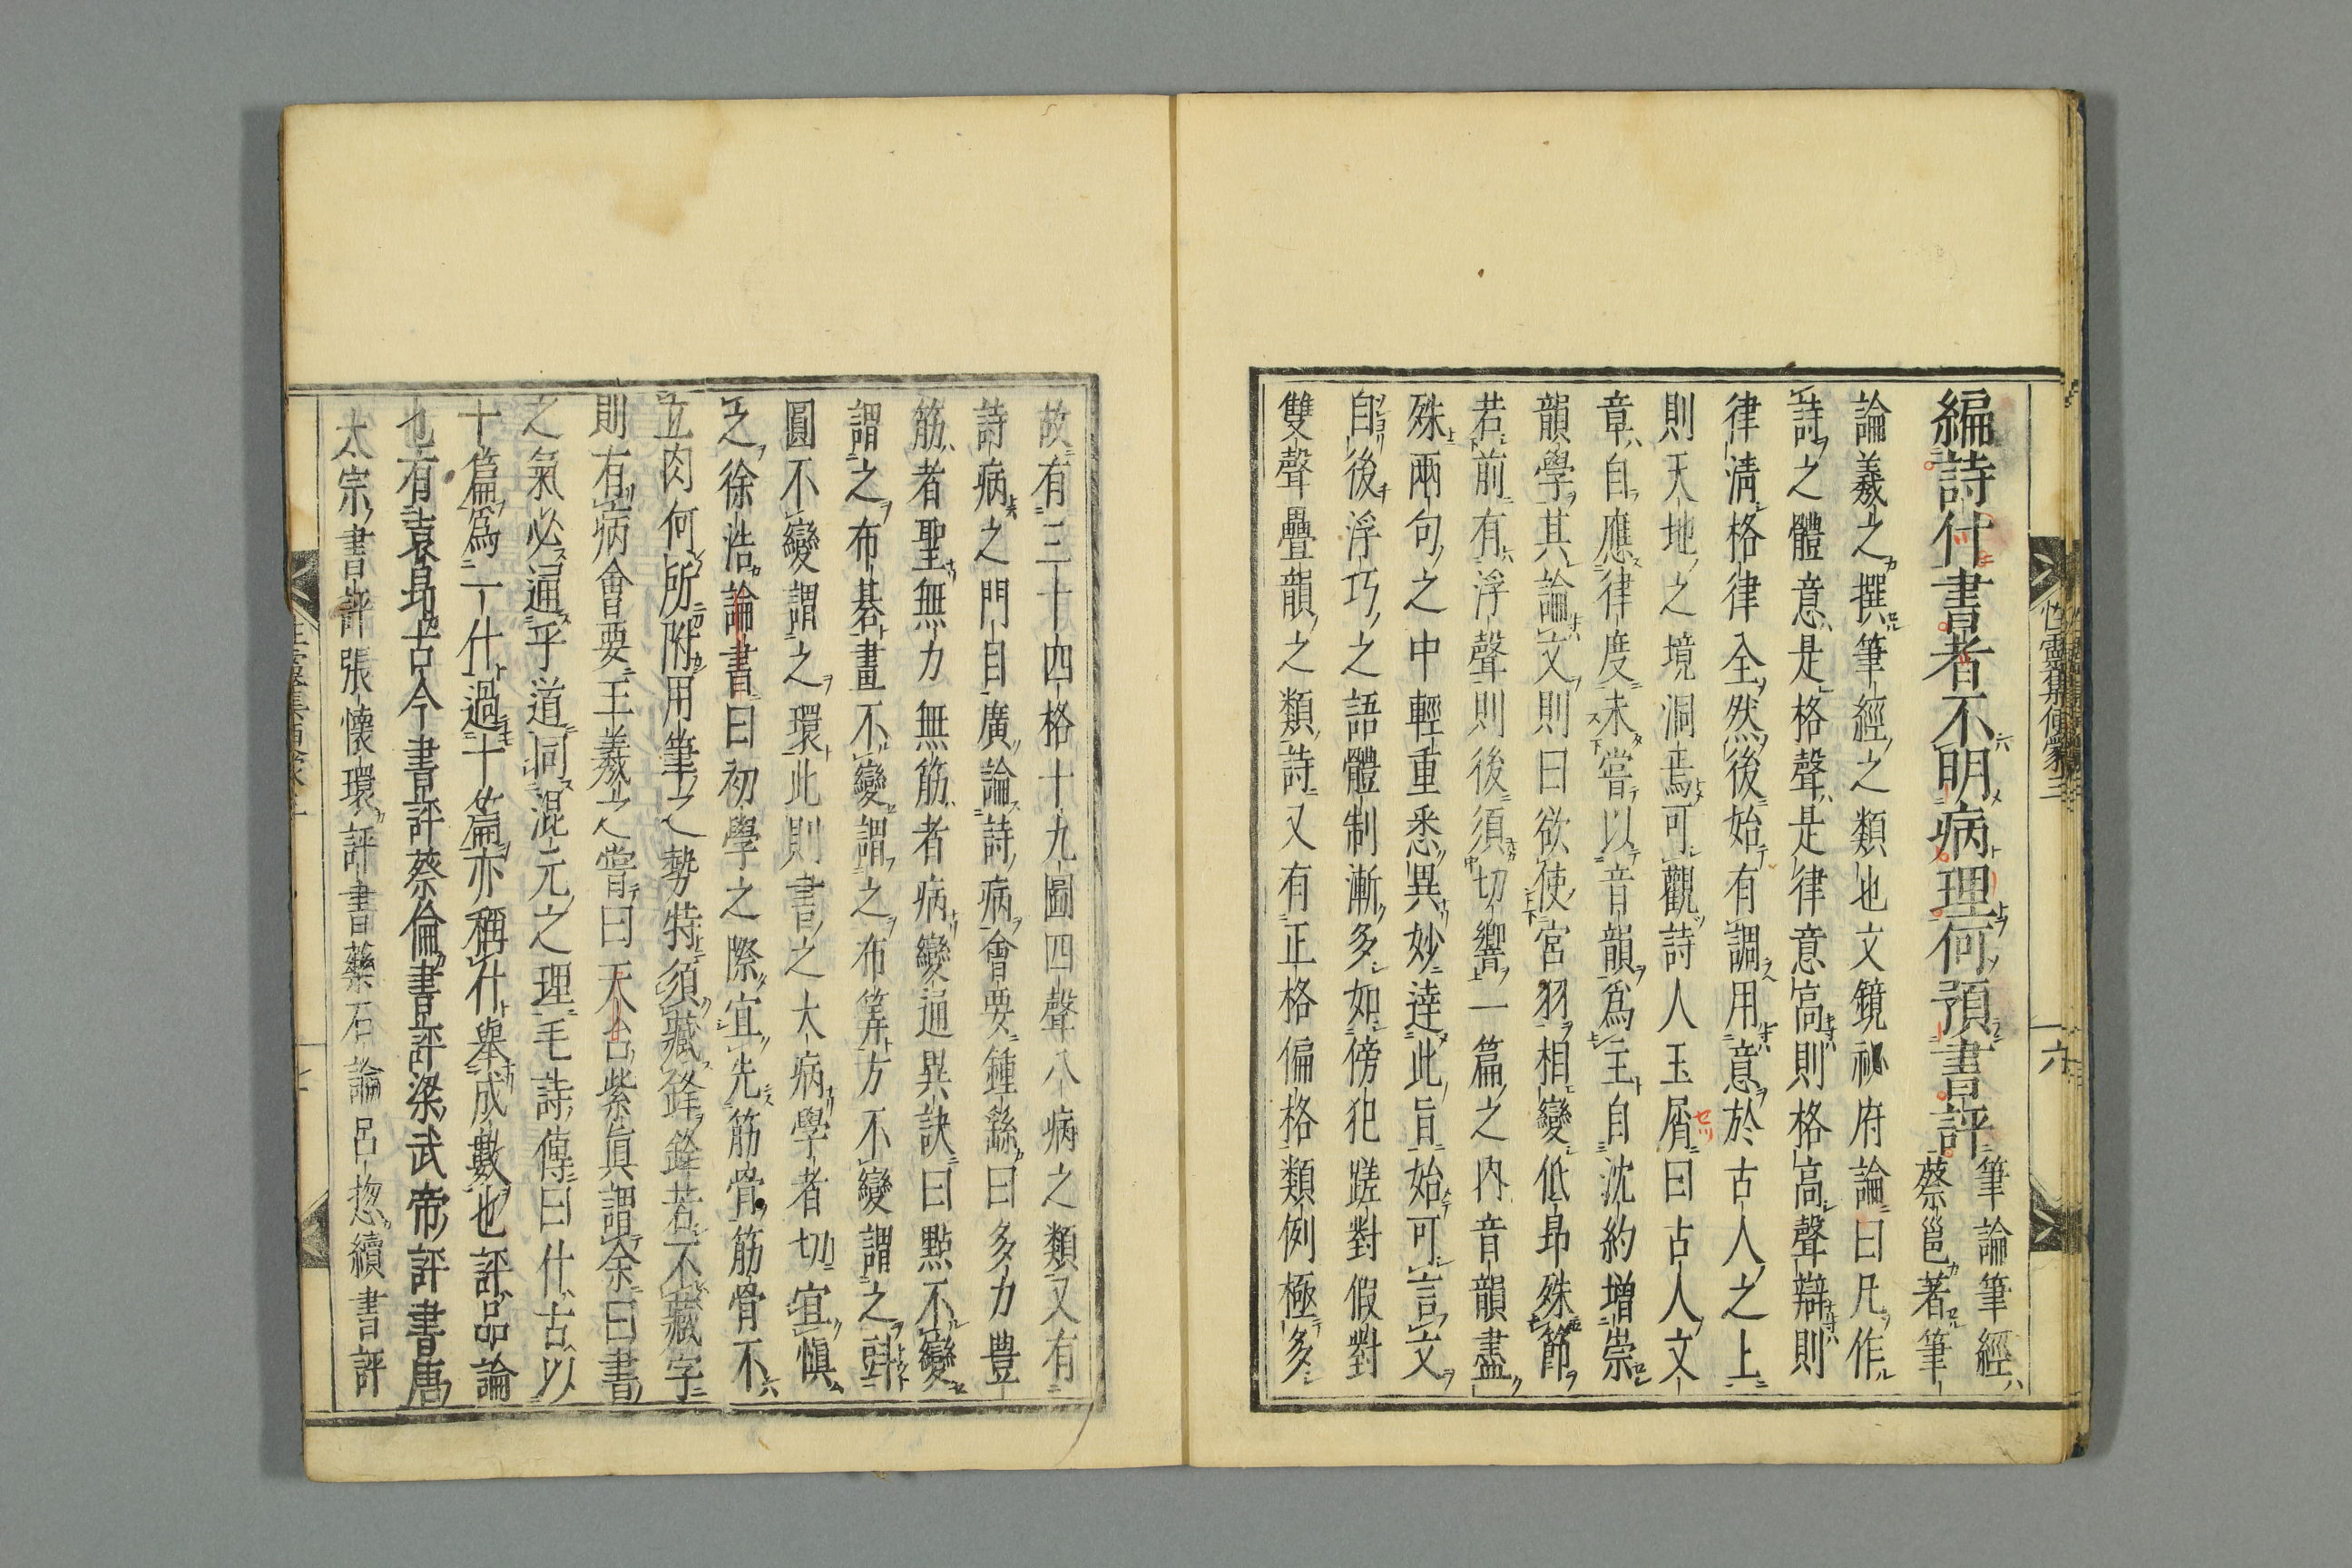 編詩什書者不明病理何預書評筆論筆經
蔡邕著筆
論羲之撰筆經之類也文鏡祕府論曰凡作
詩之體意是格聲是律意高則格高聲辯則
律淸格律全然後始有調用意於古人之上
則天地之境洞焉可觀詩人玉屑曰古人文
章自應律度未嘗以音韻爲主自沈約增崇
韻學其論文則曰欲使宮羽相變低昂殊節
若前有浮聲則後須切響一篇之内音韻盡
殊兩句之中輕重悉異妙達此旨始可言文
自後浮巧之語體制漸多如傍犯蹉對假對
雙聲疊韻之類詩又有正格偏格類例極多
故有三十四格十九圖四聲八病之類又有
詩病之門自廣論詩病會要鍾繇曰多力豊
筋者聖無力無筋者病變通異訣曰點不變
謂之布棊畫不變謂之布筭方不變謂之㪷
圓不變謂之環此則書之大病學者切宜愼
之徐浩論書曰初學之際宜先筋骨筋骨不
立肉何所附用筆之勢特須藏鋒鋒若不藏字
則有病會要王羲之嘗曰天台紫眞謂余曰書
之氣必逼乎道同混元之理毛詩傳曰什古以
十篇爲一什過十篇亦稱什舉成數也評品論
也有袁昂古今書評蔡倫書評梁武帝評書唐
太宗書評張懷環評書藥石論呂惣續書評
性靈集便蒙三
六